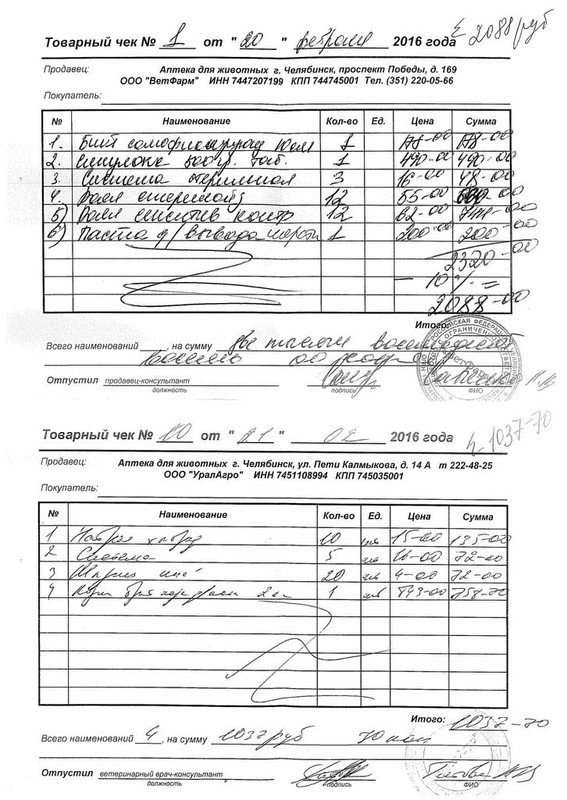 Σ 2088 руб
Товарный чек № 1 от "20" февраля 2016 года
Продавец: Аптека для животных г. Челябинск, проспект Победы, д. 169
ООО "ВетФарм" ИНН 7447207199 КПП 744745001 Тел. (351) 220-05-66
Покупатель:
№ Наименование Кол-во Ед. Цена Сумма
1. Бинт 1 178-00 178-00
2. 1 490-00 490-00
3. Система стерильная 3 16-00 48-00
4. 12 55-00 660-00
5) 12 62-00 744-00
6) Паста д/ вывода шерсти 1 200-00 200-00
2320-00
- 10 % =
2088-00
Итого:
Всего наименований , на сумму Две тысячи восемьдесят
восемь 00 копеек
Отпустил продавец-консультант
должность подпись ФИО
Σ 1037-70
Товарный чек № 10 от "21" 02 2016 года
Продавец: Аптека для животных г. Челябинск, ул. Пети Калмыкова, д. 14 А т 222-48-25
ООО "УралАгро" ИНН 7451108994 КПП 745035001
Покупатель:
№ Наименование Кол-во Ед. Цена Сумма
1 Натрия хлорид 10 шт 15-00 135-00
2 Система 5 шт 16-00 72-00
3 Шприц 20 шт 4-00 72-00
4 Корм 1 шт 843-00 758-70
Итого: 1037-70
Всего наименований 4, на сумму 1037 руб 70 коп
Отпустил ветеринарный врач-консультант
должность подпись ФИО